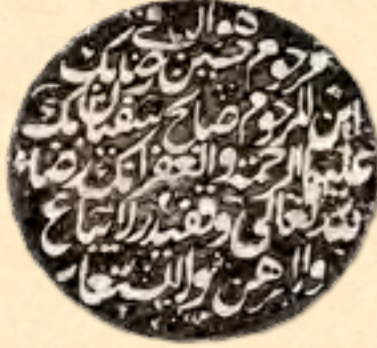 هو الباقي
مرحوم حسين رضا بك
ابن المرحوم صالح سفيان بك
عليهما الرحمة والغفرانك رضاء
لله تعالى وقفيدر لا يباع
ولا يرهن ولا يستعار